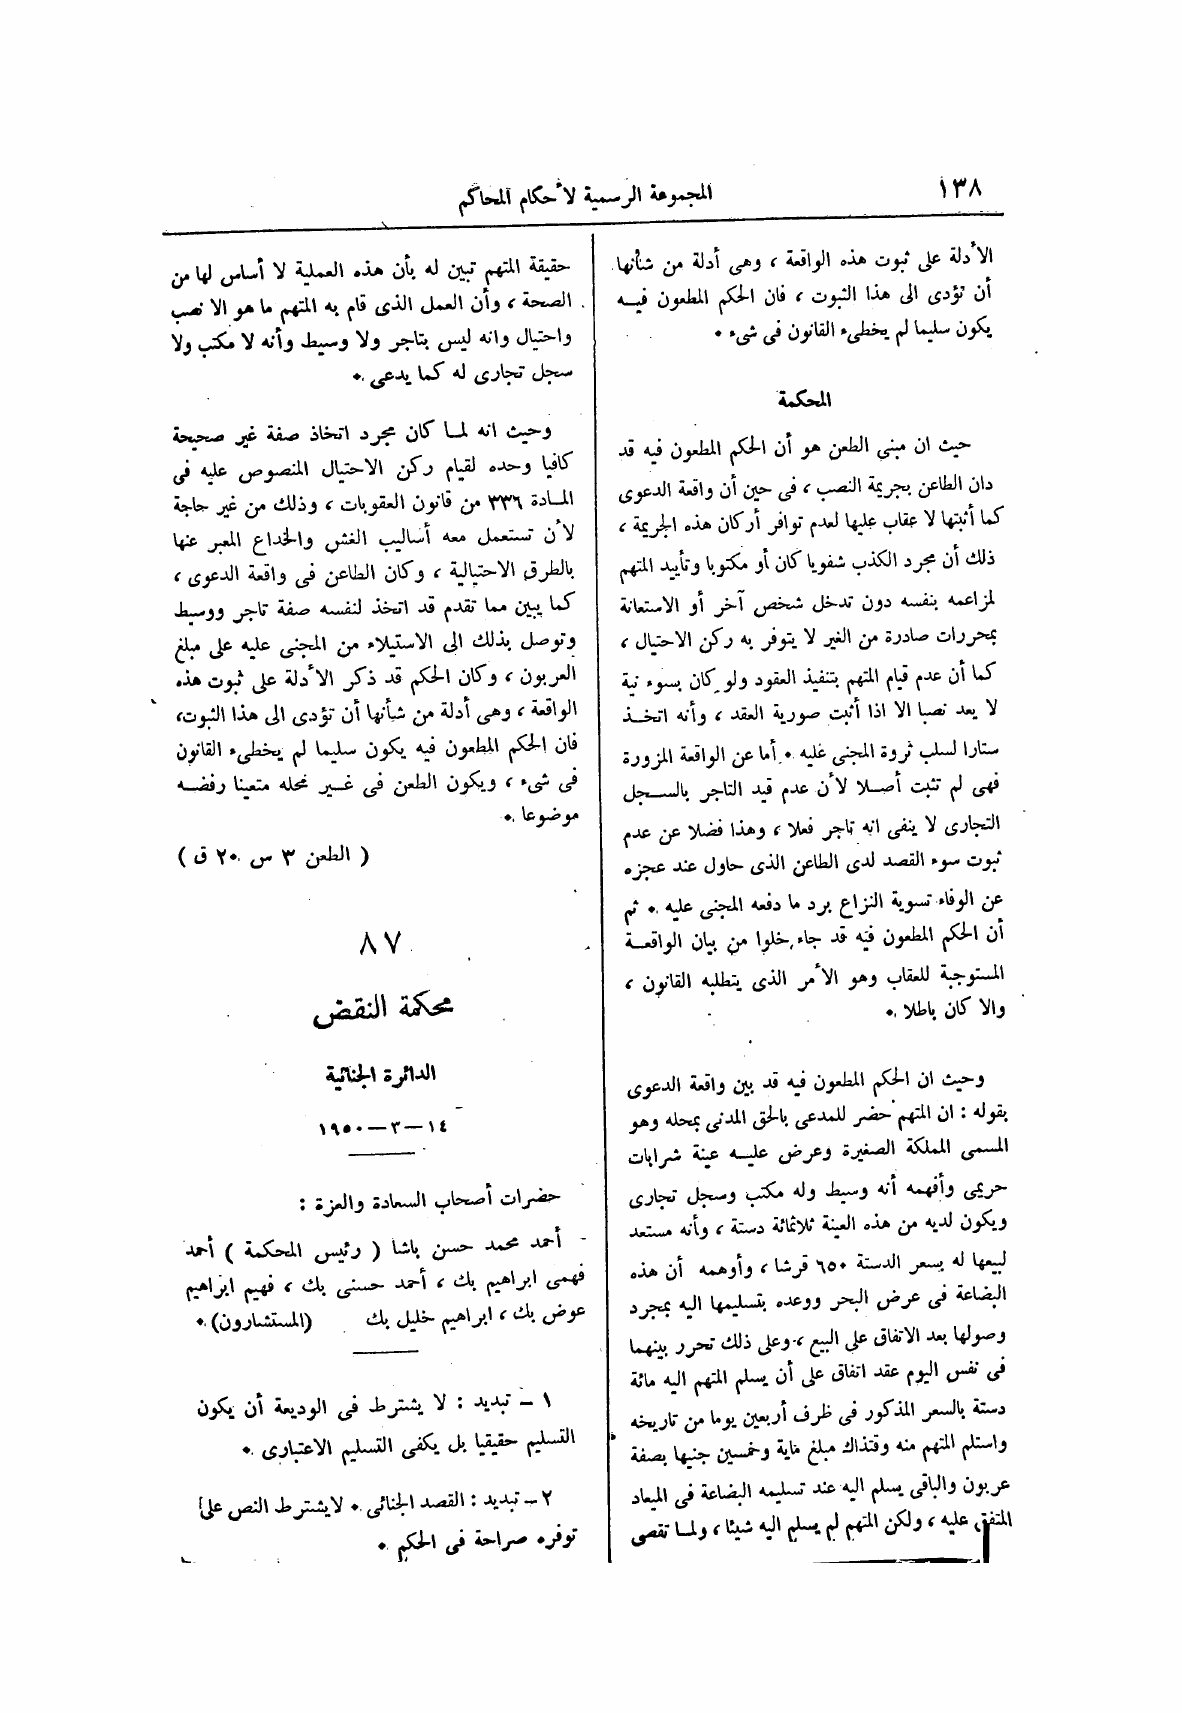 ١٣٨
المجموعة الرسمية لأحكام المحاكم
الأدلة على ثبوت هذه الواقعة ، وهى أدلة من شأنها
أن تؤدى الى هذا الثبوت ، فان الحكم المطعون فيــه
يكون سليما لم يخطىء القانون فى شىء ٠
المحكمة
حيث ان مبنى الطعن هو أن الحكم المطعون فيه قد
دان الطاعن بجريمة النصب ، فى حين أن واقعة الدعوى
كما أثبتها لا عقاب عليها لعدم توافر أركان هذه الجريمة ،
ذلك أن مجرد الكذب شفويا كان أو مكتوبا وتأييد المتهم
لمزاعمه بنفسه دون تدخل شخص آخر أو الاستعانة
بمحررات صادرة من الغير لا يتوفر به ركن الاحتيال ،
كما أن عدم قيام المتهم بتنفيذ العقود ولو كان بسوء نية
لا يعد نصبا الا اذا أثبت صورية العقد ، وأنه اتخــذ
ستارا لسلب ثروة المجنى عليه ٠ أما عن الواقعة المزورة
فهى لم تثبت أصــلا لأن عدم قيد التاجر بالســجل
التجارى لا ينفى انه تاجر فعلا ، وهذا فضلا عن عدم
ثبوت سوء القصد لدى الطاعن الذى حاول عند عجزه
عن الوفاء تسوية النزاع برد ما دفعه المجنى عليه ٠ ثم
أن الحكم المطعون فيه قد جاء خلوا من بيان الواقعــة
المستوجبة للعقاب وهو الأمر الذى يتطلبه القانون ،
والا كان باطلا ٠
وحيث ان الحكم المطعون فيه قد بين واقعة الدعوى
بقوله : ان المتهم حضر للمدعى بالحق المدنى بمحله وهو
المسمى المملكة الصغيرة وعرض عليــه عينة شرابات
حريمى وأفهمه أنه وسيط وله مكتب وسجل تجارى
ويكون لديه من هذه العينة ثلاثمائة دستة ، وأنه مستعد
لبيعها له بسعر الدستة ٦٥٠ قرشا ، وأوهمه أن هذه
البضاعة فى عرض البحر ووعده بتسليمها اليه بمجرد
وصولها بعد الاتفاق على البيع ، وعلى ذلك تحرر بينهما
فى نفس اليوم عقد اتفاق على أن يسلم المتهم اليه مائة
دستة بالسعر المذكور فى ظرف أربعين يوما من تاريخه
واستلم المتهم منه وقتذاك مبلغ ماية وخمسين جنيها بصفة
عربون والباقى يسلم اليه عند تسليمه البضاعة فى الميعاد
المتفق عليه ، ولكن المتهم لم يسلم اليه شيئا ، ولمــا تقصى
حقيقة المتهم تبين له بأن هذه العملية لا أساس لها من
الصحة ، وأن العمل الذى قام به المتهم ما هو الا نصب
واحتيال وانه ليس بتاجر ولا وسيط وأنه لا مكتب ولا
سجل تجارى له كما يدعى ٠
وحيث انه لمــا كان مجرد اتخاذ صفة غير صحيحة
كافيا وحده لقيام ركن الاحتيال المنصوص عليه فى
المــادة ٣٣٦ من قانون العقوبات ، وذلك من غير حاجة
لأن تستعمل معه أساليب الغش والخداع المعبر عنها
بالطرق الاحتيالية ، وكان الطاعن فى واقعة الدعوى ،
كما يبين مما تقدم قد اتخذ لنفسه صفة تاجر ووسيط
وتوصل بذلك الى الاستيلاء من المجنى عليه على مبلغ
العربون ، وكان الحكم قد ذكر الأدلة على ثبوت هذه
الواقعة ، وهى أدلة من شأنها أن تؤدى الى هذا الثبوت،
فان الحكم المطعون فيه يكون سليما لم يخطىء القانون
فى شىء ، ويكون الطعن فى غــير محله متعينا رفضــه
موضوعا ٠
( الطعن ٣ س ٢٠ ق )
٨٧
محكمة النقض
الدائرة الجنائية
١٤–٣–١٩٥٠
حضرات أصحاب السعادة والعزة :
أحمد محمد حسن باشا ( رئيس المحكمة ) أحمد
فهمى ابراهيم بك ، أحمد حسنى بك ، فهيم ابراهيم
عوض بك ، ابراهيم خليل بك (المستشارون) ٠
١ – تبديد : لا يشترط فى الوديعة أن يكون
التسليم حقيقيا بل يكفى التسليم الاعتبارى ٠
٢ – تبديد : القصد الجنائى ٠ لايشترط النص على
توفره صراحة فى الحكم ٠